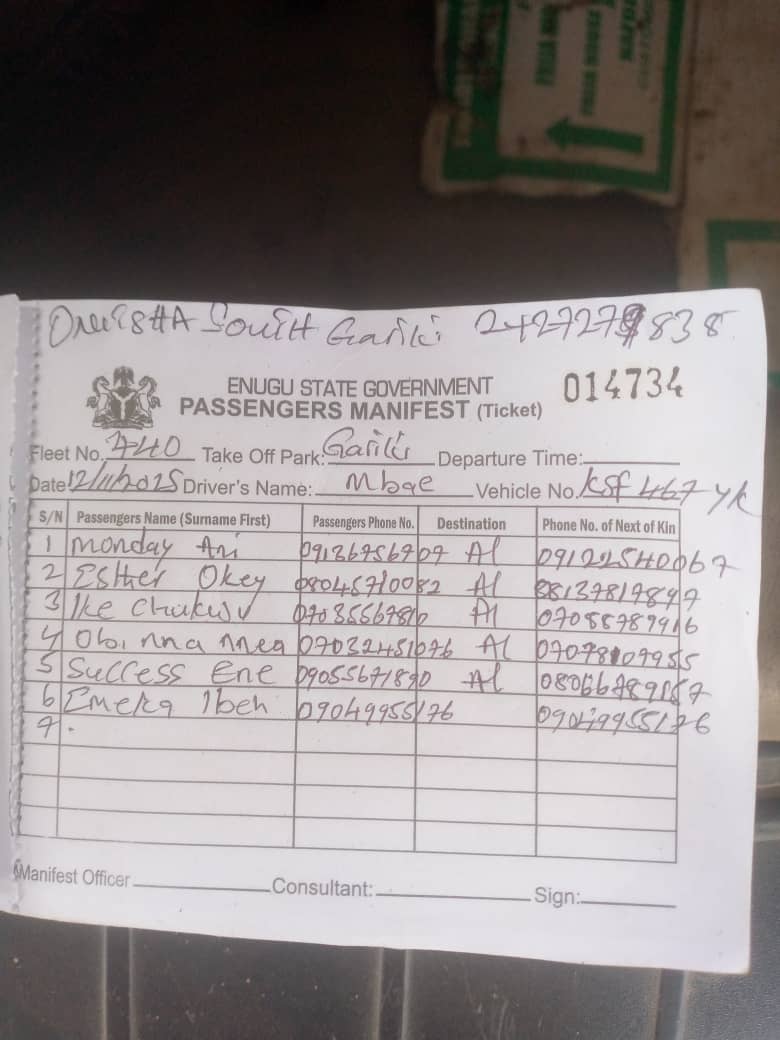 Onitsha South Gariki 2427279838
ENUGU STATE GOVERNMENT
PASSENGERS MANIFEST (Ticket)
014734
Fleet No. 440 Take Off Park: Gariki Departure Time:
Date 12/11/2025 Driver's Name: Mbae Vehicle No. KSF 467 YK
S/N Passengers Name (Surname First) Passengers Phone No. Destination Phone No. of Next of Kin
1 Monday Ani 09136756707 Al 09122540067
2 Esther Okey 08045710082 Al 08137817897
3 Ike Chukwu 07035567816 Al 07085789916
4 Obi nna nnea 07032451076 Al 07078109955
5 Success Ene 09055671890 Al 08066789167
6 Emeka Ibeh 09049955176 09049955176
7.
Manifest Officer Consultant: Sign: